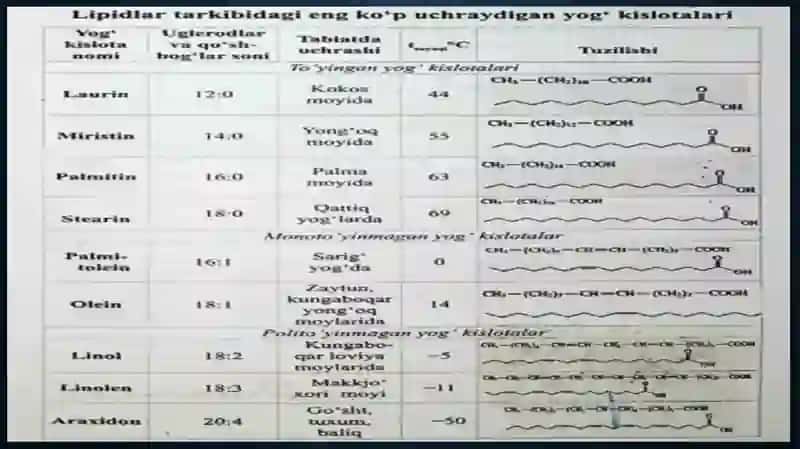 Lipidlar tarkibidagi eng ko‘p uchraydigan yog‘ kislotalari
Yog‘ kislota nomi
Uglerodlar va qo‘sh-bog‘lar soni
Tabiatda uchrashi
°C
Tuzilishi
To‘yingan yog‘ kislotalari
Laurin 12:0 Kokos moyida 44 CH₃—(CH₂)₁₀—COOH
O
OH
Miristin 14:0 Yong‘oq moyida 55 CH₃—(CH₂)₁₂—COOH
O
OH
Palmitin 16:0 Palma moyida 63 CH₃—(CH₂)₁₄—COOH
O
OH
Stearin 18:0 Qattiq yog‘larda 69 CH₃—(CH₂)₁₆—COOH
O
OH
Monoto‘yinmagan yog‘ kislotalar
Palmi-tolein 16:1 Sarig‘ yog‘da 0 CH₃—(CH₂)₅—CH=CH—(CH₂)₇—COOH
O
OH
Olein 18:1 Zaytun, kungaboqar yong‘oq moylarida 14 CH₃—(CH₂)₇—CH=CH—(CH₂)₇—COOH
Polito‘yinmagan yog‘ kislotalar
Linol 18:2 Kungabo-qar loviya moylarida –5
Linolen 18:3 Makkjo‘xori moyi –11
Araxidon 20:4 Go‘sht, tuxum, baliq –50